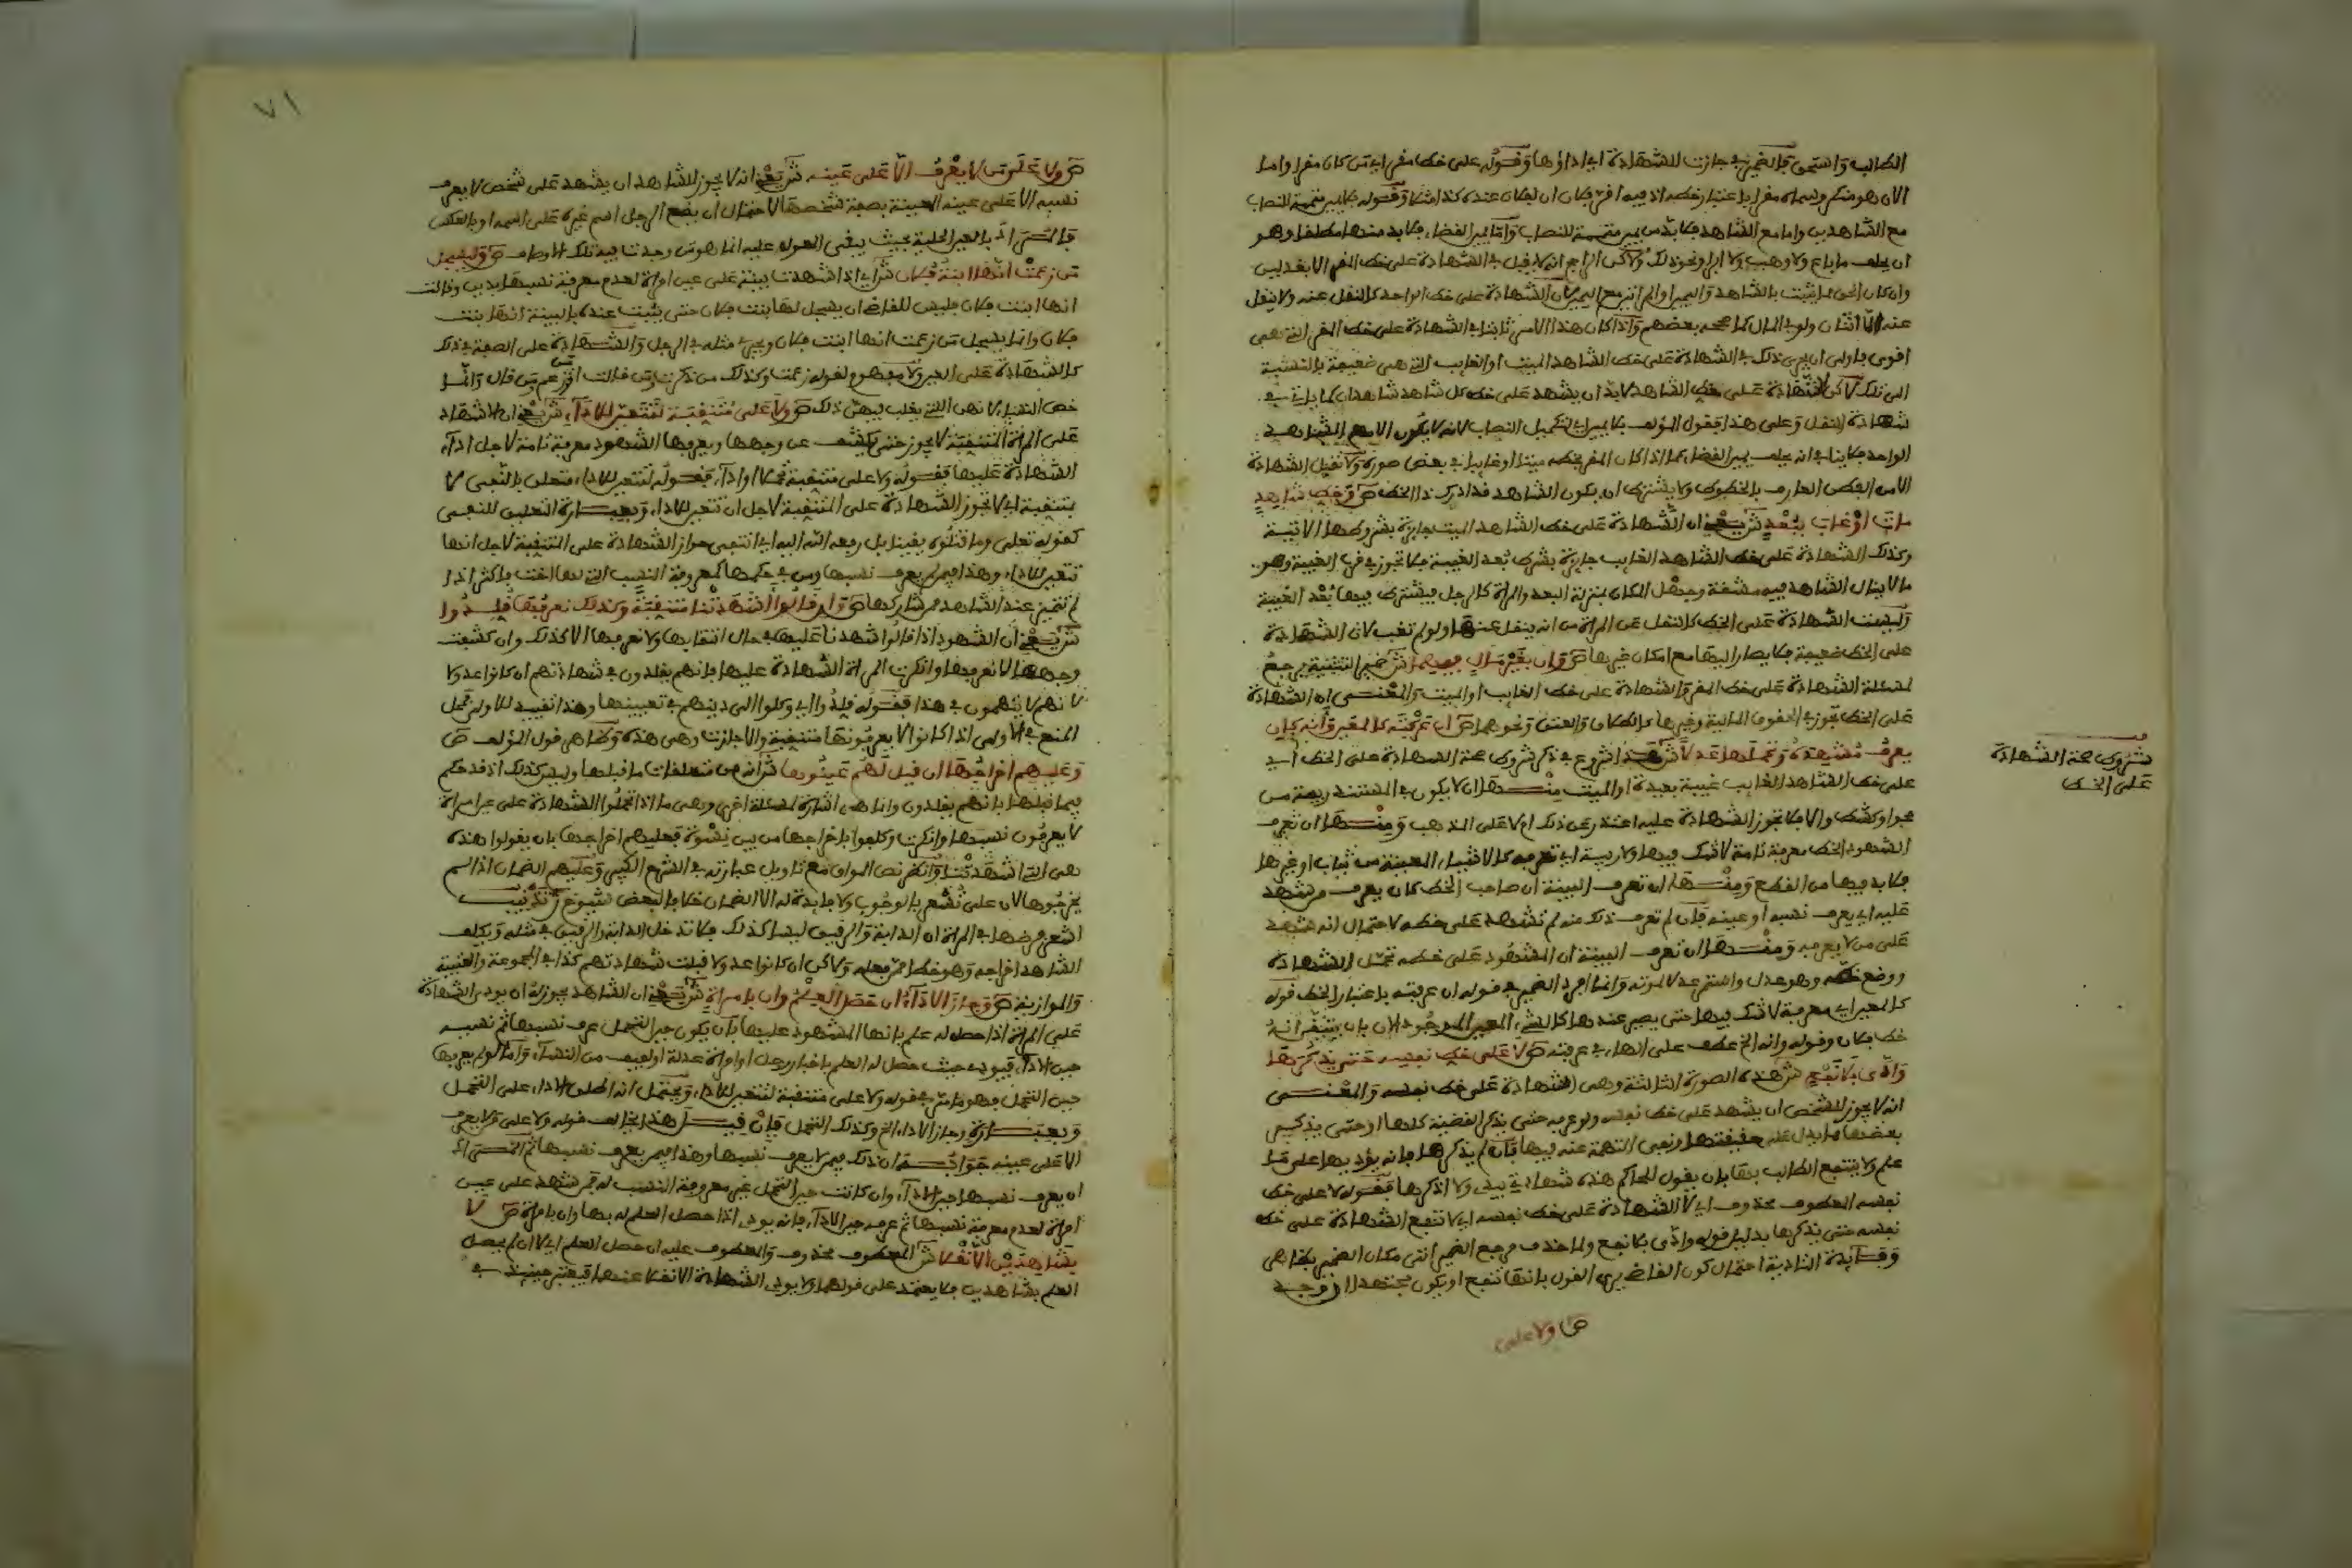 الطالب واستحق فالضمير في جازت للشهادة اي اداؤها وقوله على خط مقر اي من كان مقرا واما
الآن هو منكر وسماه مقرا باعتبار خطه اذ فيه اقر فلان ان لفلان عنده كذا وقوله بلا يمين متممة للنصاب
مع الشاهدين واما مع الشاهد فلا بد من يمين متممة للنصاب واما يمين القضاء فلا بد منها مطلقا وهو
ان يحلف ما باع ولا وهب ولا ابرا ونحو ذلك ولاكن الراجح انه لا يقبل في الشهادة على خط المقر الا بعدلين
وان كان الحق مما يثبت بالشاهد واليمين او المراتين مع اليمين لان الشهادة على خط الواحد كالنقل عنه ولا ينقل
عنه الا اثنان ولو في المال كما صححه بعضهم واذا كان هذا الامر ثابتا في الشهادة على خط المقر التي هي
اقوى فاولى ان يجري ذلك في الشهادة على خط الشاهد الميت او الغايب التي هي ضعيفة بالنسبة
الى ذلك لاكن الشهادة على خط الشاهد لا بد ان يشهد على خط كل شاهد شاهدان كما ياتي في
شهادة النقل وعلى هذا فقول المؤلف بلا يمين اي لتكميل النصاب لانه لا يكون الا مع الشاهد
الواحد فلا ينافي انه يحلف يمين القضاء فيما اذا كان المقر بخطه ميتا او غايبا في بعض صوره ولا تقبل الشهادة
الا من الفطن العارف بالخطوط ولا يشترط ان يكون الشاهد قد ادرك ذا الخط ص وخط شاهد
مات او غاب ببعد ش يعني ان الشهادة على خط الشاهد الميت جايزة بشروطها الاتية
وكذلك الشهادة على خط الشاهد الغايب جايزة بشرط بعد الغيبة فلا تجوز في قرب الغيبة وهو
ما لا ينال الشاهد فيه مشقة وجهل المكان بمنزلة البعد والمراة كالرجل فيشترط فيها بعد الغيبة
وليست الشهادة على الخط كالنقل عن المراة من انه ينقل عنها ولو لم تغب لان الشهادة
على الخط ضعيفة فلا يصار اليها مع امكان غيرها ص وان بغير مال فيهما ش ضمير التثنية يرجع
لمسئلة الشهادة على خط المقر والشهادة على خط الغايب او الميت والمعنى ان الشهادة
على الخط تجوز في الحقوق المالية وغيرها كالطلاق والعتق ونحوهما ص ان عرفته كالمعين وانه كان
يعرف مشهده وتحملها عدلا ش هذا شروع في ذكر شروط صحة الشهادة على الخط اي
على خط الشاهد الغايب غيبة بعيدة او الميت منها ان لا يكون في المستند ريبة من
محو او كشط والا فلا تجوز الشهادة عليه اعتذر عن ذلك ام لا على المذهب ومنها ان تعرف
الشهود الخط معرفة تامة لا شك فيها ولا ريبة اي تعرفه كالاشياء المعينة من ثياب او غيرها
فلا بد فيها من القطع ومنها ان تعرف البينة ان صاحب الخط كان يعرف من شهد
عليه اي يعرف نسبه او عينه فان لم تعرف ذلك منه لم تشهد على خطه لاحتمال انه شهد
على من لا يعرفه ومنها ان تعرف البينة ان المشهود على خطه تحمل الشهادة
ووضع خطه وهو عدل واستمر عدلا لموته وانما افرد الضمير في قوله ان عرفته باعتبار الخط قوله
كالمعين اي معرفة لا شك فيها حتى يصير عندها كالشيء المعين الموجود الآن بان يتيقن انه
خط فلان وقوله وانه الخ عطف على الهاء في عرفته ص لا على خط نفسه حتى يذكرها
وادى بلا نفع ش هذه الصورة الثالثة وهي الشهادة على خط نفسه والمعنى
انه لا يجوز للشخص ان يشهد على خط نفسه ولو عرفه حتى يذكر القضية كلها او حتى يذكر
بعضها ما يدل على حقيقتها ونفي التهمة عنه فيها فان لم يذكرها فانه يؤديها على ما
علم ولا ينتفع الطالب بها بان يقول للحاكم هذه شهادتي بيدي ولا اذكرها فقوله لا على خط
نفسه المعطوف محذوف اي لا الشهادة على خط نفسه اي لا تنفع الشهادة على خط
نفسه حتى يذكرها بدليل قوله وادى بلا نفع ولما حذف مرجع الضمير اتى مكان الضمير بظاهر
وفايدة التادية احتمال كون القاضي يرى القول بانها تنفع او يكون مجتهدا
ص ولا على
شروط صحة الشهادة
على الخط
٧١
ص ولا على من لا يعرف الا على عينه ش يعني انه لا يجوز للشاهد ان يشهد على شخص لا يعرف
نسبه الا على عينه المعينة بصفة شخصها لاحتمال ان يضع الرجل اسم غيره على اسمه او بالعكس
فالمعنى اذ بالعين الحلية بحيث يبقى المعول عليه انما هو من وجدت فيه تلك الاوصاف ص وليسجل
من زعمت انها ابنة فلان ش اي اذا شهدت بينة على عين امراة لعدم معرفة نسبها بدين وقالت
انها ابنت فلان فليس للقاضي ان يسجل لها بنت فلان حتى يثبت عنده بالبينة انها بنت
فلان وانما يسجل من زعمت انها ابنت فلان ويجري مثله في الرجل والشهادة على الصفة في ذلك
كالشهادة على العين ولا مفهوم لقوله زعمت وكذلك من ذكرت او من قالت او من زعم او من قال وانما
خص النساء لانهن اللتي يغلب فيهن ذلك ص ولا على منتقبة لتتعين للاداء ش يعني ان الاشهاد
على المراة المنتقبة لا يجوز حتى يكشف عن وجهها ويعرفها الشهود معرفة تامة لاجل اداء
الشهادة عليها فقوله ولا على منتقبة تحملا او اداء فقوله لتتعين للاداء متعلق بالنفي لا
بمنتقبة اي لا تجوز الشهادة على المنتقبة لاجل ان تتعين للاداء وبعبارة التعليق للنفي
كقوله تعلى وما قتلوه يقينا بل رفعه الله اليه اي انتفى جواز الشهادة على المنتقبة لاجل انها
تتعين للاداء وهذا فيمن لم يعرف نسبها ومن في حكمها كمعروفة النسب التي لها اخت فاكثر اذا
لم تتميز عند الشاهد من مشاركها ص وان قالوا اشهدتنا منتقبة وكذلك نعرفها قلدوا
ش يعني ان الشهود اذا قالوا شهدنا عليها في حال انتقابها ولا نعرفها الا كذلك وان كشفت
وجهها لا نعرفها وانكرت المراة الشهادة عليها فانهم يقلدون في شهادتهم ان كانوا عدولا
لانهم لا يتهمون في هذا فقوله قلدوا اي وكلوا الى دينهم في تعيينها وهذا تقييد للاولى فمحل
المنع في الاولى اذا كانوا لا يعرفونها منتقبة والا جازت وهي هذه وظاهر قول المؤلف ص
وعليهم اخراجها ان قيل لهم عينوها ش انه من متعلقات ما قبلها وليس كذلك اذ قد حكم
فيما قبلها بانهم يقلدون وانما هي اشارة لمسئلة اخرى وهي ما اذا تحملوا الشهادة على عين امراة
لا يعرفون نسبها وانكرت وكلفوا باخراجها من بين نسوة فعليهم اخراجها بان يقولوا هذه
هي التي اشهدتنا وانظر نص المواق مع تاويل عبارته في الشرح الكبير وعليهم الضمان اذا لم
يخرجوها لان على تشعر بالوجوب ولا فايدة له الا الضمان خلافا لبعض الشيوخ تنبيه
اشعر فرضها في المراة ان الدابة والرقيق ليسا كذلك فلا تدخل الدابة والرقيق في مثله ويكلف
الشاهد اخراجه وهو خطا ممن فعله ولاكن ان كانوا عدولا قبلت شهادتهم كذا في المجموعة والعتبية
والموازية ص وجاز الاداء ان حصل العلم وان بامراة ش يعني ان الشاهد يجوز له ان يودي الشهادة
على المراة اذا حصل له علم بانها المشهود عليها بان يكون حين التحمل عرف نسبها ثم نسيه
حين الاداء فيودي حيث حصل له العلم باخبار رجل او امراة عدلة او لفيف من النساء واما لو لم يعرفها
حين التحمل فهو ما مر في قوله ولا على منتقبة لتتعين للاداء ويحتمل انه اطلق الاداء على التحمل
وبعبارة وجاز الاداء الخ وكذلك التحمل فان قيل هذا يخالف قوله ولا على من لا يعرف
الا على عينه جوابه ان ذلك فيمن لا يعرف نسبها وهذا فيمن يعرف نسبها ثم المعنى اذ
ان يعرف نسبها حين الاداء وان كانت حين التحمل غير معروفة النسب له فمن شهد على عين
امراة لعدم معرفة نسبها ثم عرفه حين الاداء فانه يودي اذا حصل العلم له بها وان بامراة ص لا
بشاهدين الا نقلا ش المعطوف محذوف والمعطوف عليه ان حصل العلم اي لا ان لم يحصل
العلم بشاهدين فلا يعتمد على قولهما ولا يودي الشهادة الا نقلا عنهما فيعتبر حينئذ في